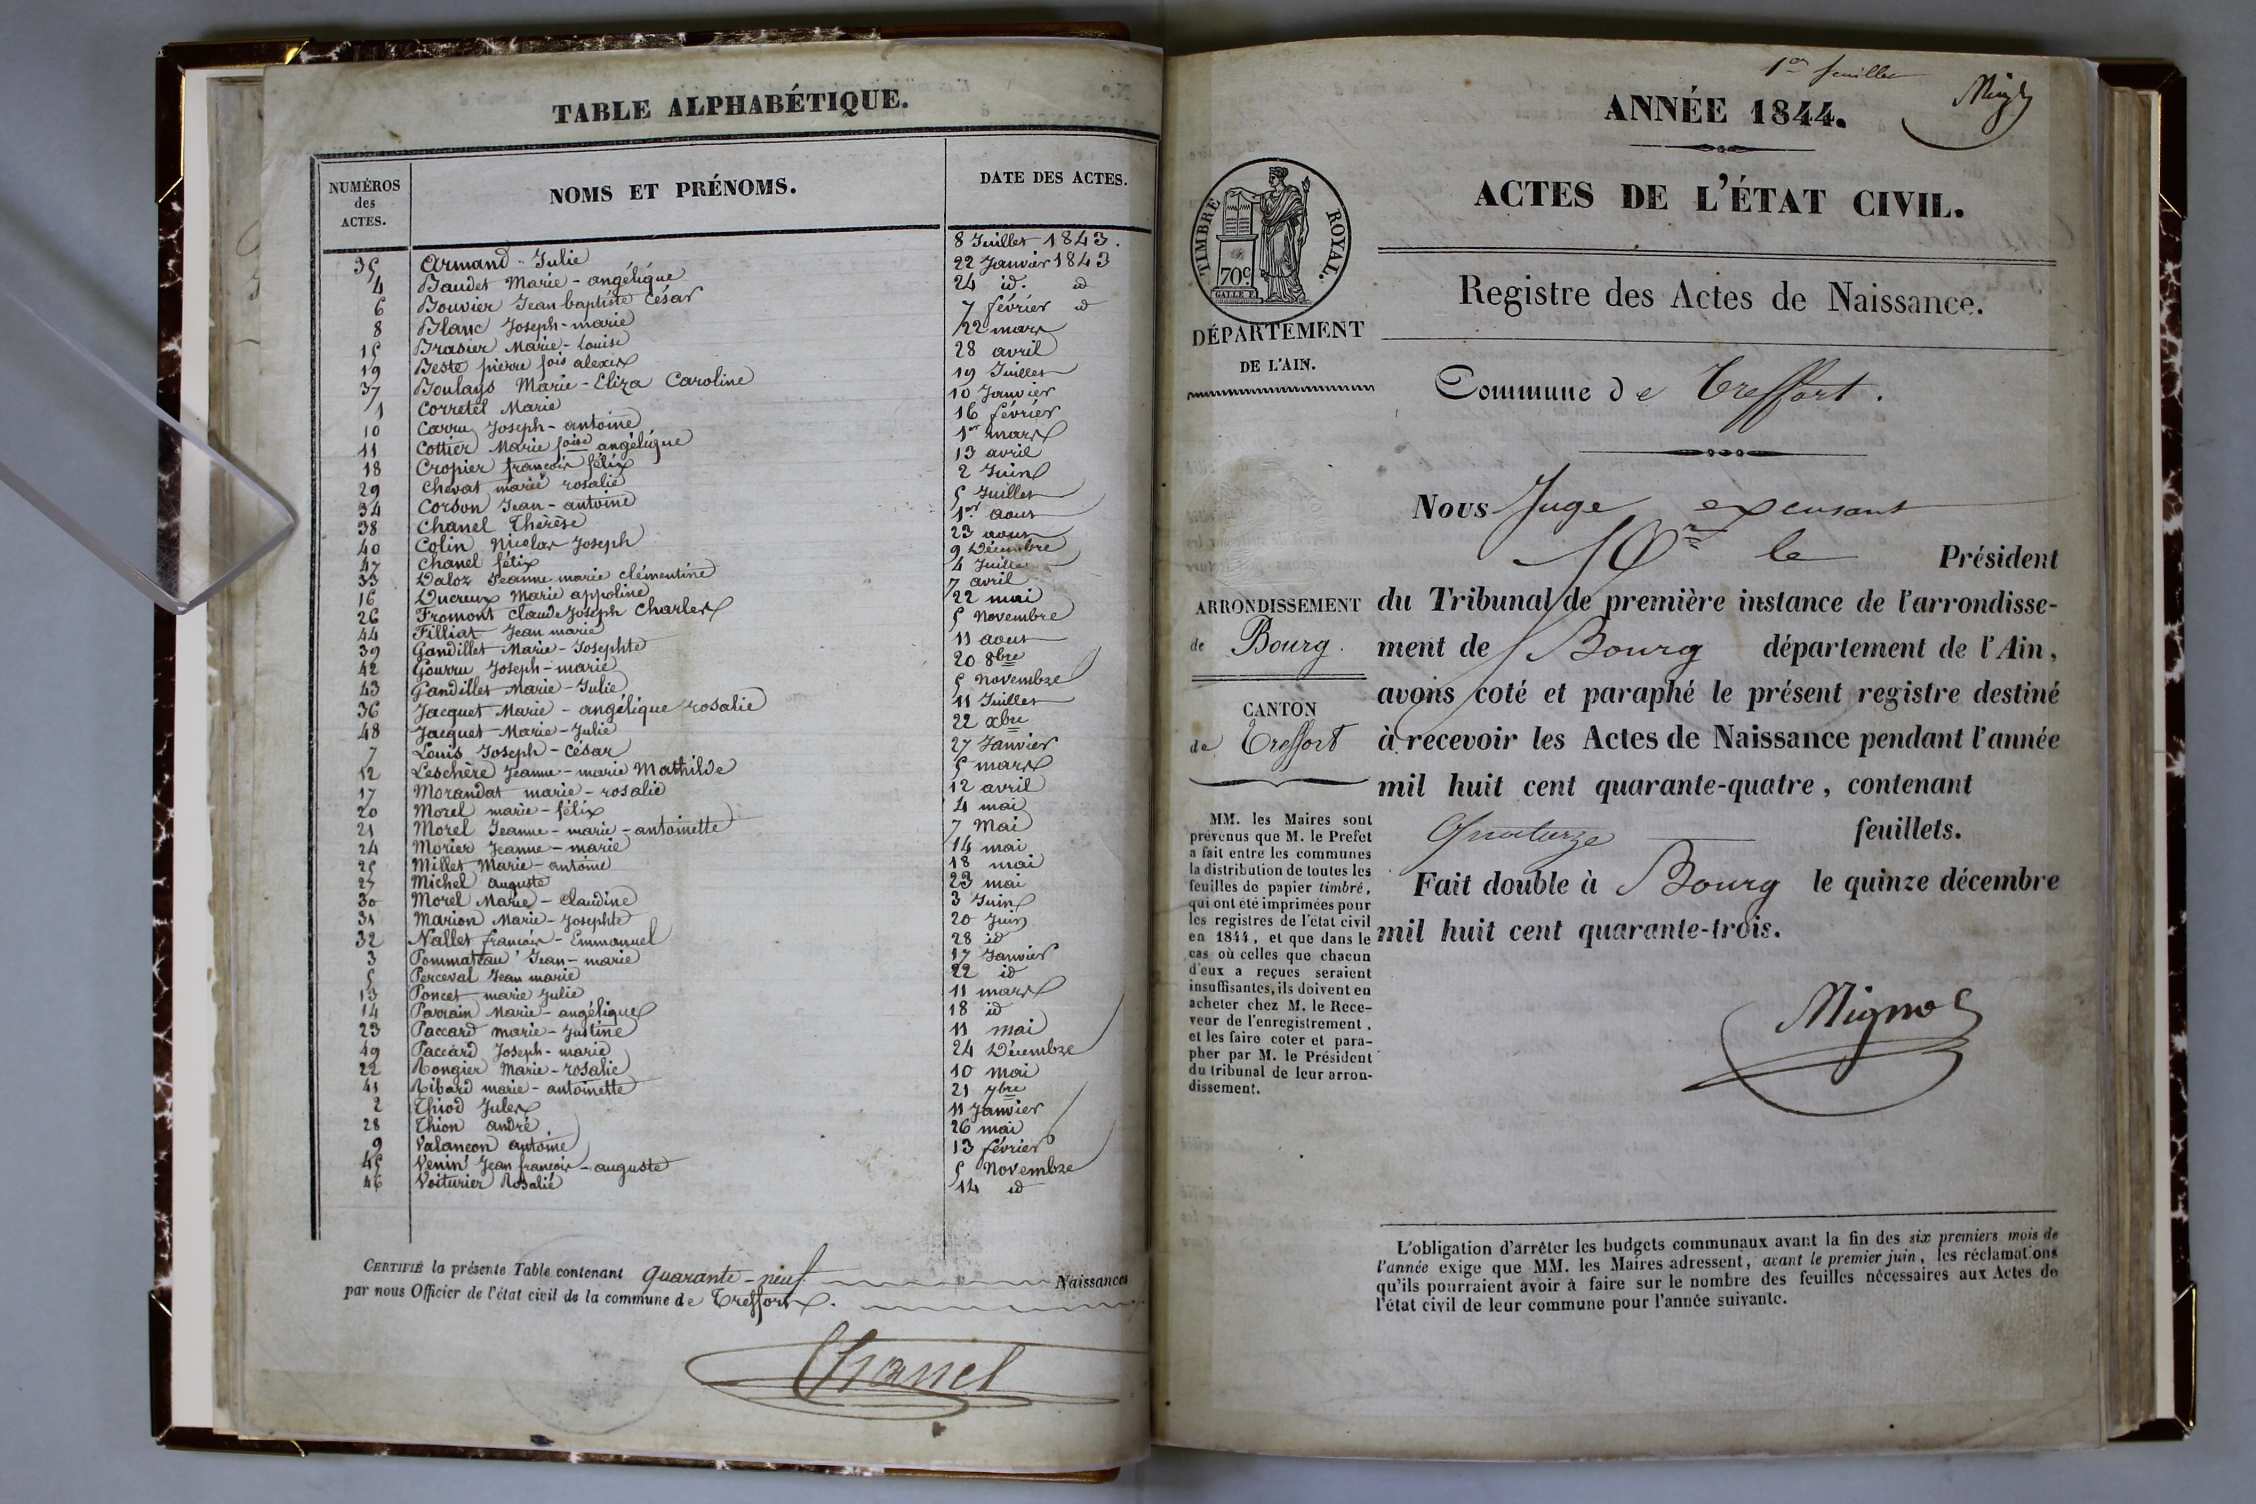 TABLE ALPHABÉTIQUE.
NUMÉROS des ACTES. NOMS ET PRÉNOMS. DATE DES ACTES.
35 Armand - Julie 8 Juillet 1843.
4 Baudet Marie - angélique 22 Janvier 1843
6 Bouvier Jean baptiste César 24 id. id
8 Blanc Joseph - marie 7 février id
15 Brasier Marie - Louise 22 mars
19 Beste pierre fois alexis 28 avril
37 Boulays Marie - Eliza Caroline 19 Juillet
1 Corretel Marie 10 Janvier
10 Carru Joseph - antoine 16 février
11 Cottier Marie foise angélique 1er mars
18 Cropier françois félix 13 avril
29 Chevat marie rosalie 2 Juin
34 Corson Jean - antoine 5 Juillet
38 Chanel Thérèse 1er aout
40 Colin Nicolas Joseph 23 aout
47 Chanel félix 9 Décembre
33 Daloz Jeanne marie clémentine 4 Juillet
16 Ducreux Marie appoline 7 avril
26 Fromont Claude Joseph Charles 22 mai
44 Filliat Jean marie 5 Novembre
39 Gandillet Marie - Josephte 11 aout
42 Gourru Joseph - marie 20 8bre
43 Gandillet Marie - Julie 5 Novembre
36 Jacquet Marie - angélique rosalie 11 Juillet
48 Jacquet Marie - Julie 22 xbre
7 Louis Joseph - César 27 Janvier
12 Leschère Jeanne - marie Mathilde 5 mars
17 Morandat marie - rosalie 12 avril
20 Morel marie - félix 4 mai
21 Morel Jeanne - marie - antoinette 7 Mai
24 Morier Jeanne - marie 14 mai
25 Millet Marie - antoine 18 mai
27 Michel auguste 23 mai
30 Morel Marie - claudine 3 Juin
31 Marion Marie - Josephte 20 Juin
32 Nallet françois - Emmanuel 28 id
3 Pommateau Jean - marie 17 Janvier
5 Perceval Jean marie 22 id
13 Poncet marie Julie 11 mars
14 Parrain Marie - angélique 18 id
23 Paccard marie - Justine 11 mai
49 Paccard Joseph - marie 24 Décembre
22 Rongier Marie - rosalie 10 mai
41 Ribard marie - antoinette 21 7bre
2 Thiod Jules 11 Janvier
28 Thion andré 26 mai
9 Valançon antoine 13 février
45 Venin Jean françois - auguste 5 Novembre
46 Voiturier Rosalie 14 id
CERTIFIÉ la présente Table contenant quarante - neuf Naissances
par nous Officier de l'état civil de la commune de Treffort.
Chanel
1er feuillet
ANNÉE 1844.
ACTES DE L'ÉTAT CIVIL.
TIMBRE ROYAL.
70c
GALLE F.
DÉPARTEMENT
DE L'AIN.
Registre des Actes de Naissance.
Commune de Treffort.
Nous Juge excusant
Mr le Président
du Tribunal de première instance de l'arrondisse-
ment de Bourg département de l'Ain,
avons coté et paraphé le présent registre destiné
à recevoir les Actes de Naissance pendant l'année
mil huit cent quarante-quatre, contenant
Quatorze feuillets.
Fait double à Bourg le quinze décembre
mil huit cent quarante-trois.
Mignot
ARRONDISSEMENT
de Bourg.
CANTON
de Treffort
MM. les Maires sont
prévenus que M. le Prefet
a fait entre les communes
la distribution de toutes les
feuilles de papier timbré,
qui ont été imprimées pour
les registres de l'état civil
en 1844, et que dans le
cas où celles que chacun
d'eux a reçues seraient
insuffisantes, ils doivent en
acheter chez M. le Rece-
veur de l'enregistrement,
et les faire coter et para-
pher par M. le Président
du tribunal de leur arron-
dissement.
L'obligation d'arrêter les budgets communaux avant la fin des six premiers mois de
l'année exige que MM. les Maires adressent, avant le premier juin, les réclamations
qu'ils pourraient avoir à faire sur le nombre des feuilles nécessaires aux Actes de
l'état civil de leur commune pour l'année suivante.